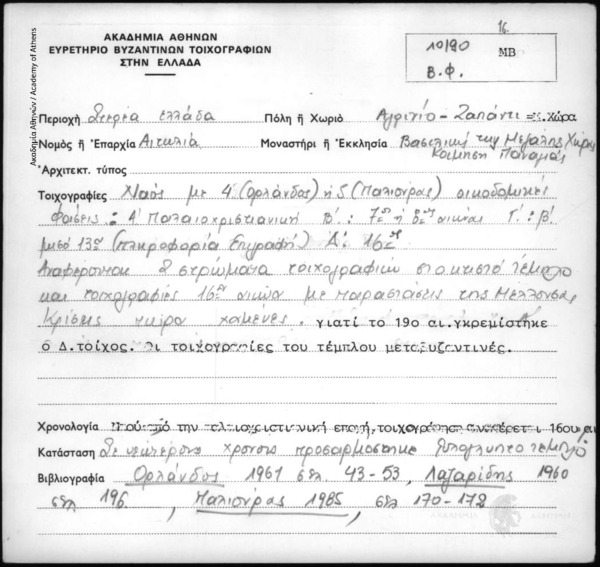 16.
ΑΚΑΔΗΜΙΑ ΑΘΗΝΩΝ
ΕΥΡΕΤΗΡΙΟ ΒΥΖΑΝΤΙΝΩΝ ΤΟΙΧΟΓΡΑΦΙΩΝ
ΣΤΗΝ ΕΛΛΑΔΑ
10/90 ΜΒ
Β.Φ.
Ακαδημία Αθηνών / Academy of Athens
Περιοχή Στερεά Ελλάδα Πόλη ή Χωριό Αγρίνιο - Ζαπάντι = Μ. Χώρα
Νομός ή Επαρχία Αιτωλία Μοναστήρι ή Εκκλησία Βασιλική της Μεγάλης Χώρας
Κοίμηση Παναγίας
Άρχιτεκτ. τύπος
Τοιχογραφίες Ναός με 4 (Ορλάνδος) ή 5 (Παλιούρας) οικοδομικές
φάσεις: Α' Παλαιοχριστιανική Β': 7ος ή 8ος αιώνας Γ': β'
μισό 13ου (πληροφορία Επιγραφή) Δ': 16ος
Αναφέρονται 2 στρώματα τοιχογραφιών στο κτιστό τέμπλο
και τοιχογραφίες 16ου αιώνα με παραστάσεις της Μέλλουσας
Κρίσης τώρα χαμένες. γιατί το 19ο αι.γκρεμίστηκε
ο Δ.τοίχος. Οι τοιχογραφίες του τέμπλου μεταβυζαντινές.
Χρονολογία την εποχή, 16ου αι
Κατάσταση Σε νεώτερους χρόνους προσαρμόστηκε ξυλόγλυπτο τέμπλο
Βιβλιογραφία Ορλάνδος 1961 σελ. 43-53, Λαζαρίδης 1960
σελ 196, Παλιούρας 1985, σελ 170-172